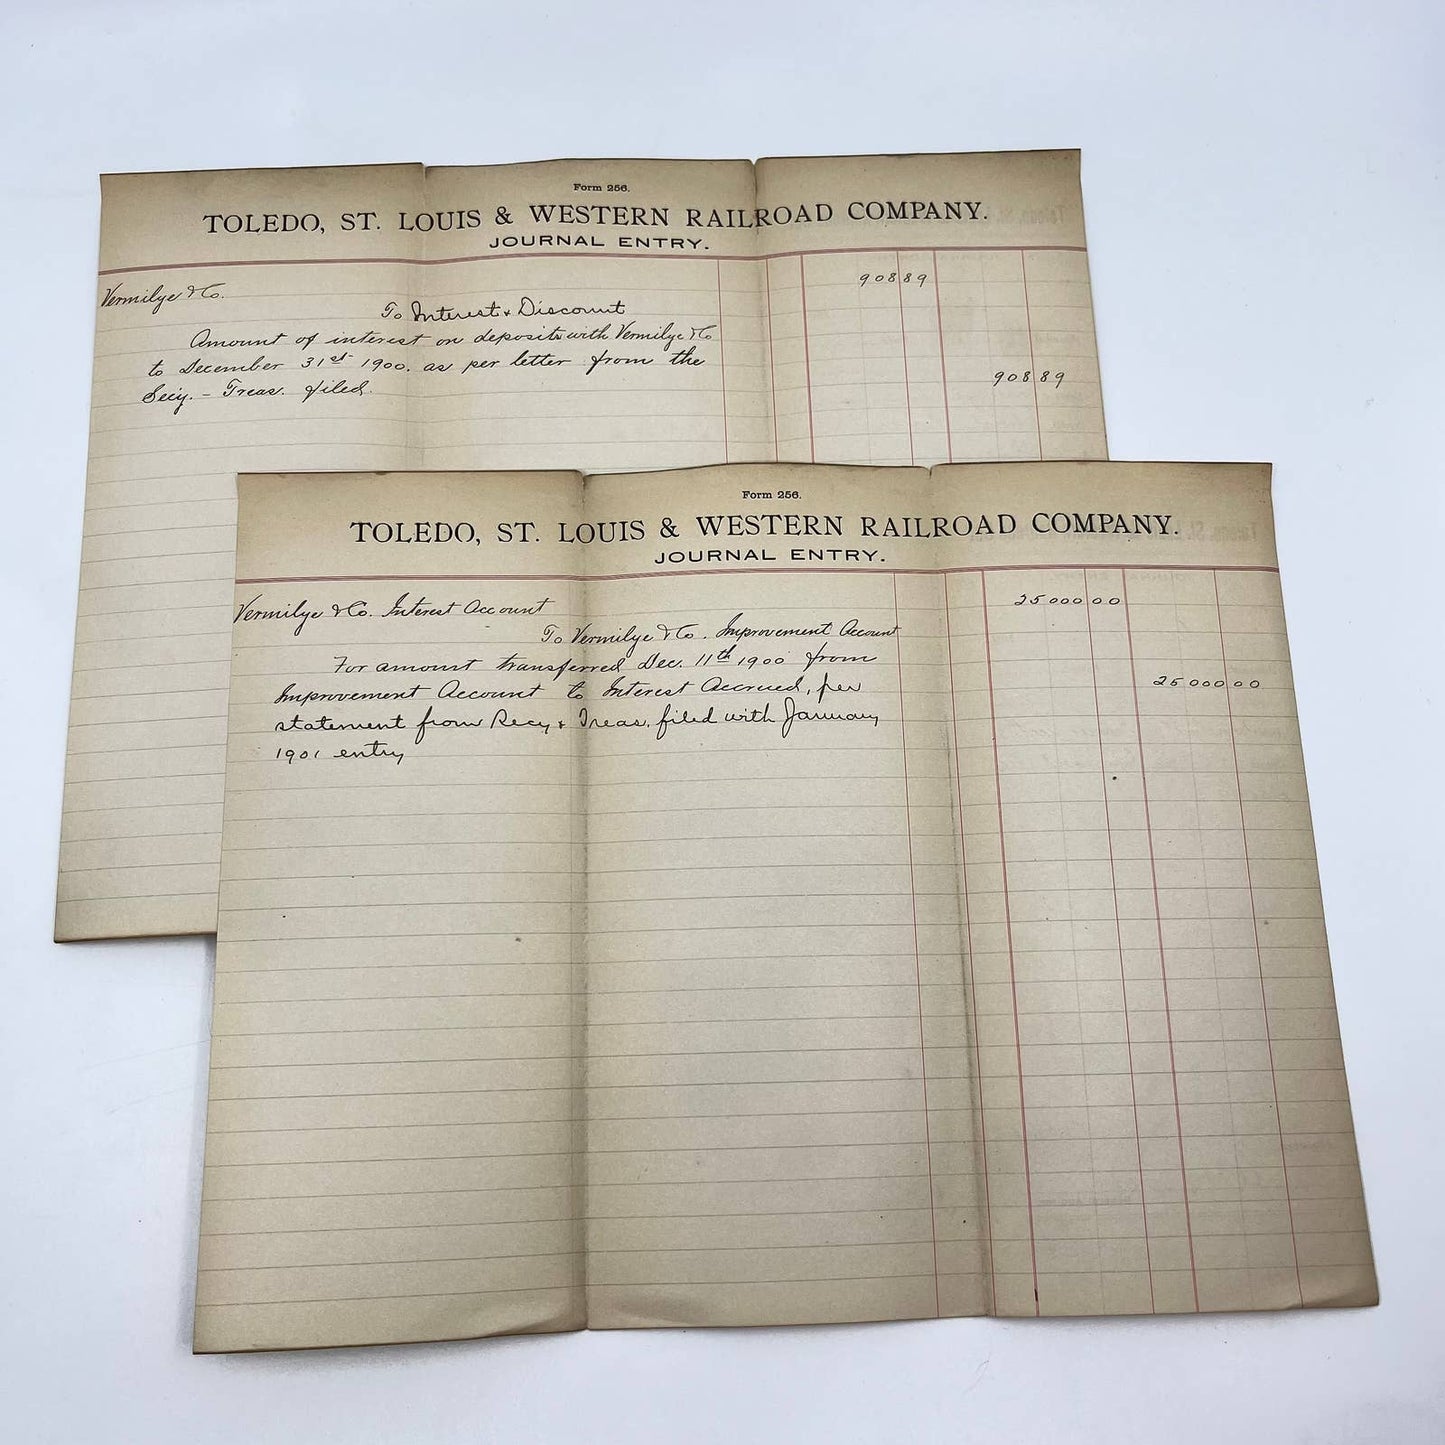 Form 256.
TOLEDO, ST. LOUIS & WESTERN RAILROAD COMPANY.
JOURNAL ENTRY.
908 89
Vermilye & Co.
To Interest & Discount
Amount of interest on deposits with Vermilye & Co
to December 31st 1900. as per letter from the
908 89
Secy. - Treas. filed.
Form 256.
TOLEDO, ST. LOUIS & WESTERN RAILROAD COMPANY.
JOURNAL ENTRY.
Vermilye & Co. Interest Account 25000 00
To Vermilye & Co. Improvement Account
For amount transferred Dec. 11th 1900 from
Improvement Account to Interest Accrued, per 25000 00
statement from Secy & Treas. filed with January
1901 entry